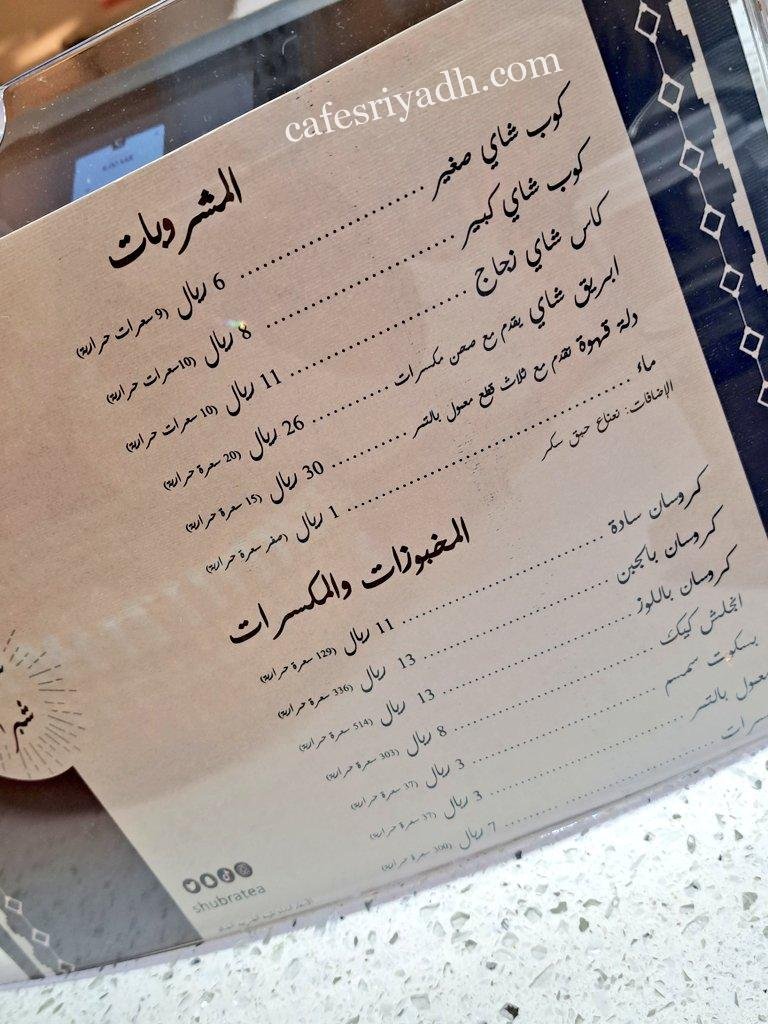 cafesriyadh.com
المشروبات
كوب شاي صغير ........ 6 ريال (9 سعرات حرارية)
كوب شاي كبير ........ 8 ريال (10 سعرات حرارية)
كاس شاي زجاج ........ 11 ريال (10 سعرات حرارية)
ابريق شاي يقدم مع صحن مكسرات ........ 26 ريال (20 سعرة حرارية)
دلة قهوة تقدم مع ثلاث قطع معمول بالتمر ........ 30 ريال (15 سعرة حرارية)
ماء ........ 1 ريال (صفر سعرة حرارية)
الإضافات: نعناع حبق سكر
المخبوزات والمكسرات
كروسان سادة ........ 11 ريال (129 سعرة حرارية)
كروسان بالجبن ........ 13 ريال (336 سعرة حرارية)
كروسان باللوز ........ 13 ريال (514 سعرة حرارية)
انجلش كيك ........ 8 ريال (303 سعرة حرارية)
بسكوت سمسم ........ 3 ريال (37 سعرة حرارية)
معمول بالتمر ........ 3 ريال (37 سعرة حرارية)
........ 7 ريال (300 سعرة حرارية)
shubratea